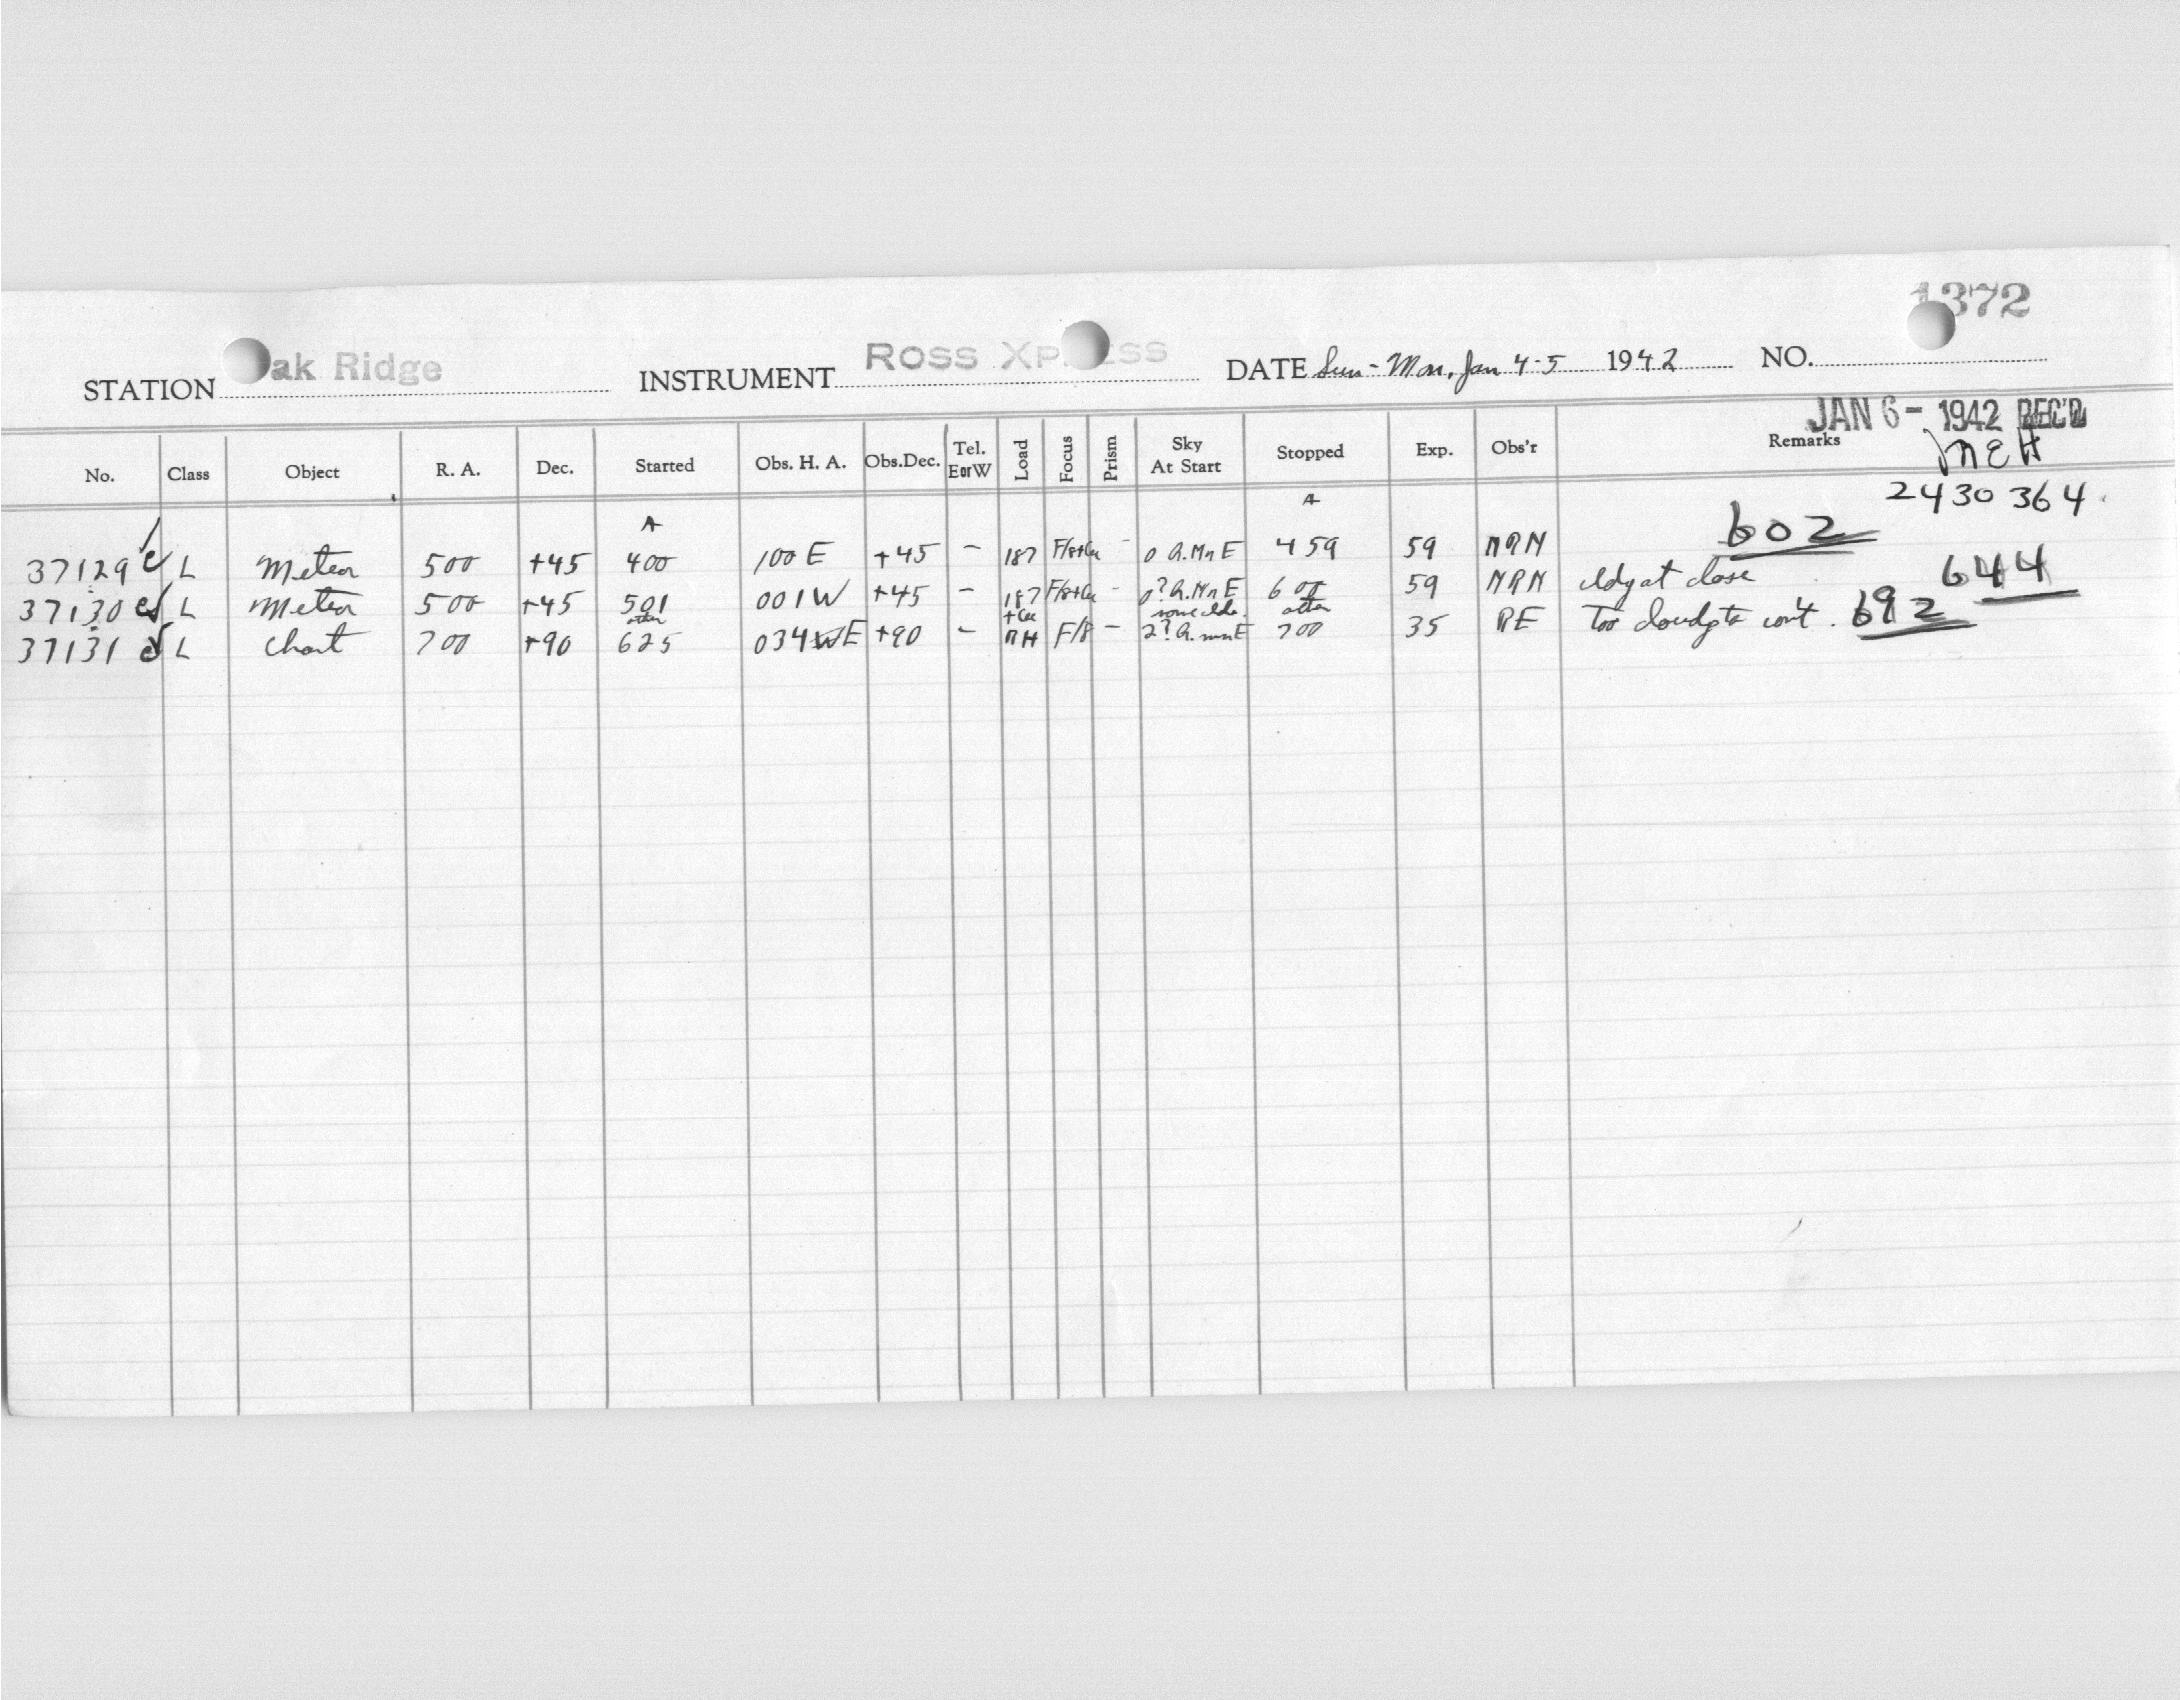 1372
STATION ak Ridge INSTRUMENT ROSS XP ESS DATE Sun - Mon, Jan 4-5 1942 NO.
JAN 6 - 1942 REC'D
No. Class Object R. A. Dec. Started Obs. H. A. Obs.Dec. Tel. E or W Load Focus Prism Sky At Start Stopped Exp. Obs'r Remarks
MEH
2430 364
A A
602
37129 e L Meteor 500 +45 400 100 E +45 - 187 - 0 A.Mn E 459 59 MRM
644
37130 e L Meteor 500 +45 501 001 W +45 - 187 - 0? A.Mn E 600 59 MRM cldy at close
some clds.
37131 L Chart 700 +90 625 034 W E +90 - RH F/8 - 2? A.mn E 700 35 RE Too cloudy to con't. 692